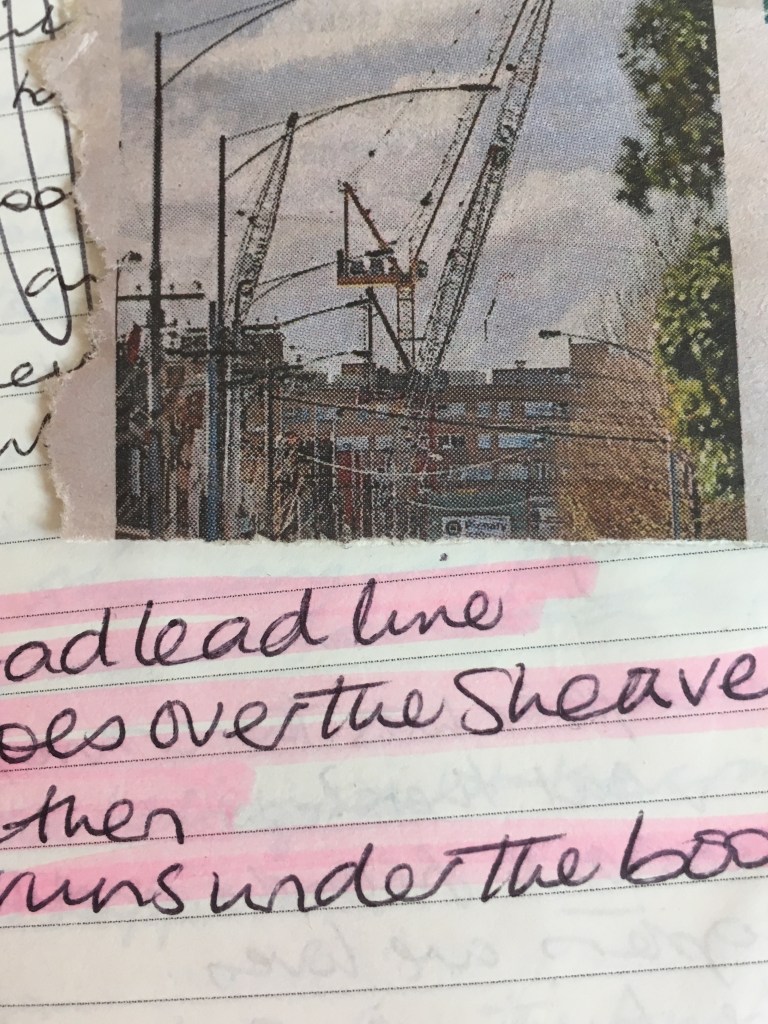 ad lead line
oes over the Sheave
then
runs under the boo
Plenary